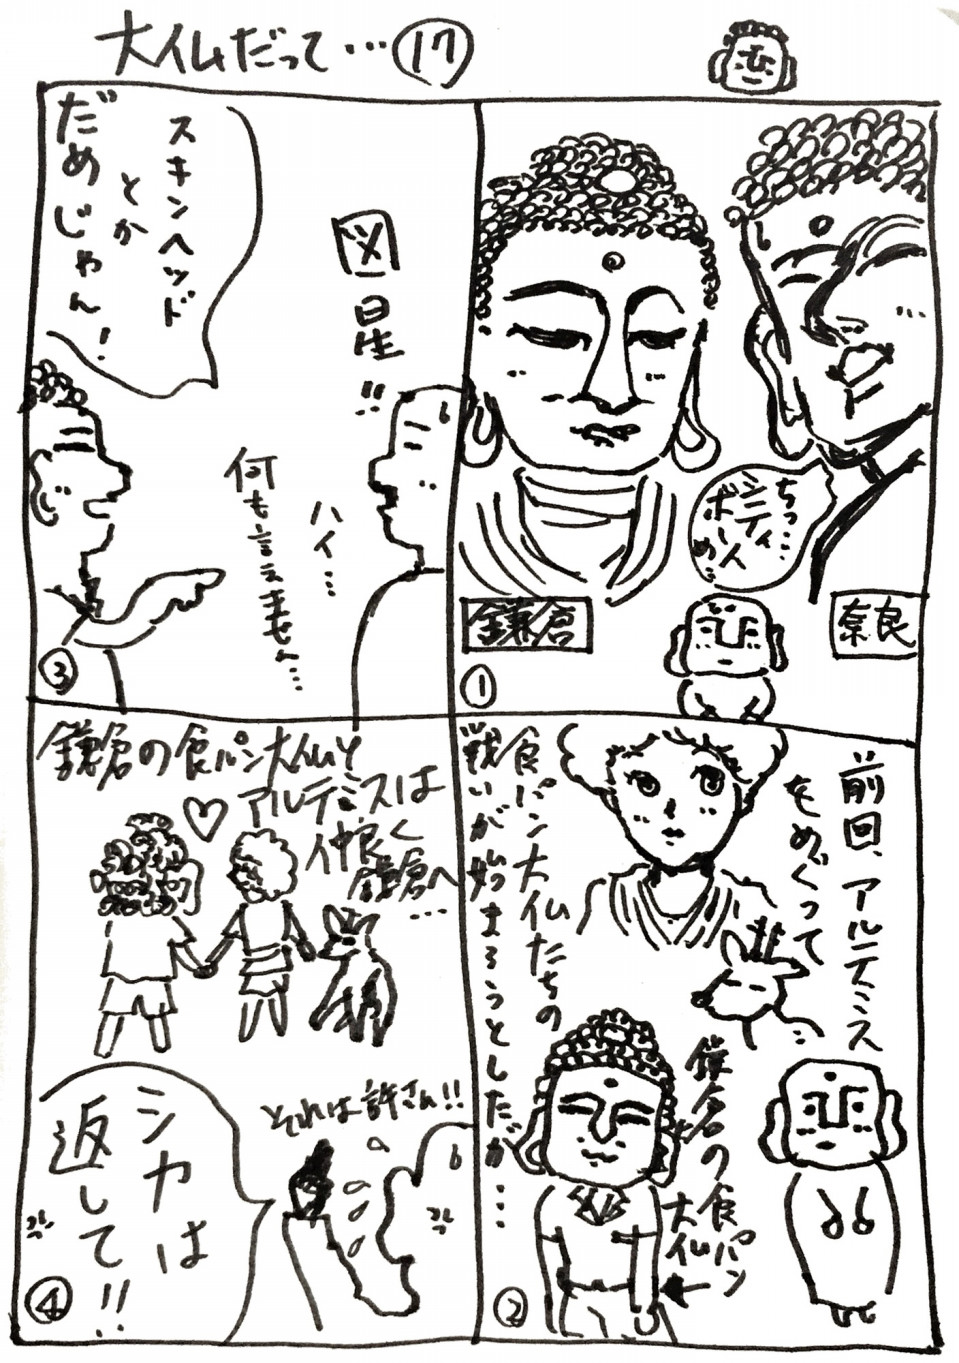 大仏だって…⑰
ちっ…
シニティ
ボーイ
め…
鎌倉
奈良
①
前回、アルテミス
をめぐって
食パン大仏たちの
戦いが始まろうとしたが…
鎌倉の食パン
大仏
②
図星!!
スキンヘッド
とか
だめじゃん!
ハイ…
何も言えません…
③
鎌倉の食パン大仏と
アルテミスは
仲良く
鎌倉へ
…
それは許さん!!
シカは
返して!!
④